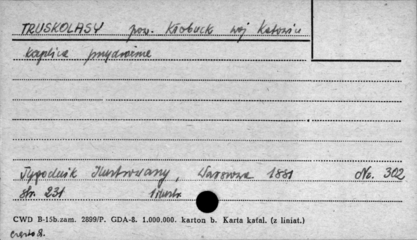 TRUSKOLASY pow. Kłobuck woj Katowice
kaplica przydrożna
Tygodnik Ilustrowany, Warszawa 1881 No. 302
str. 231 1 ilustr.
CWD B-15b.zam. 2899/P. GDA-8. 1.000.000. karton b. Karta katal. (z liniat.)